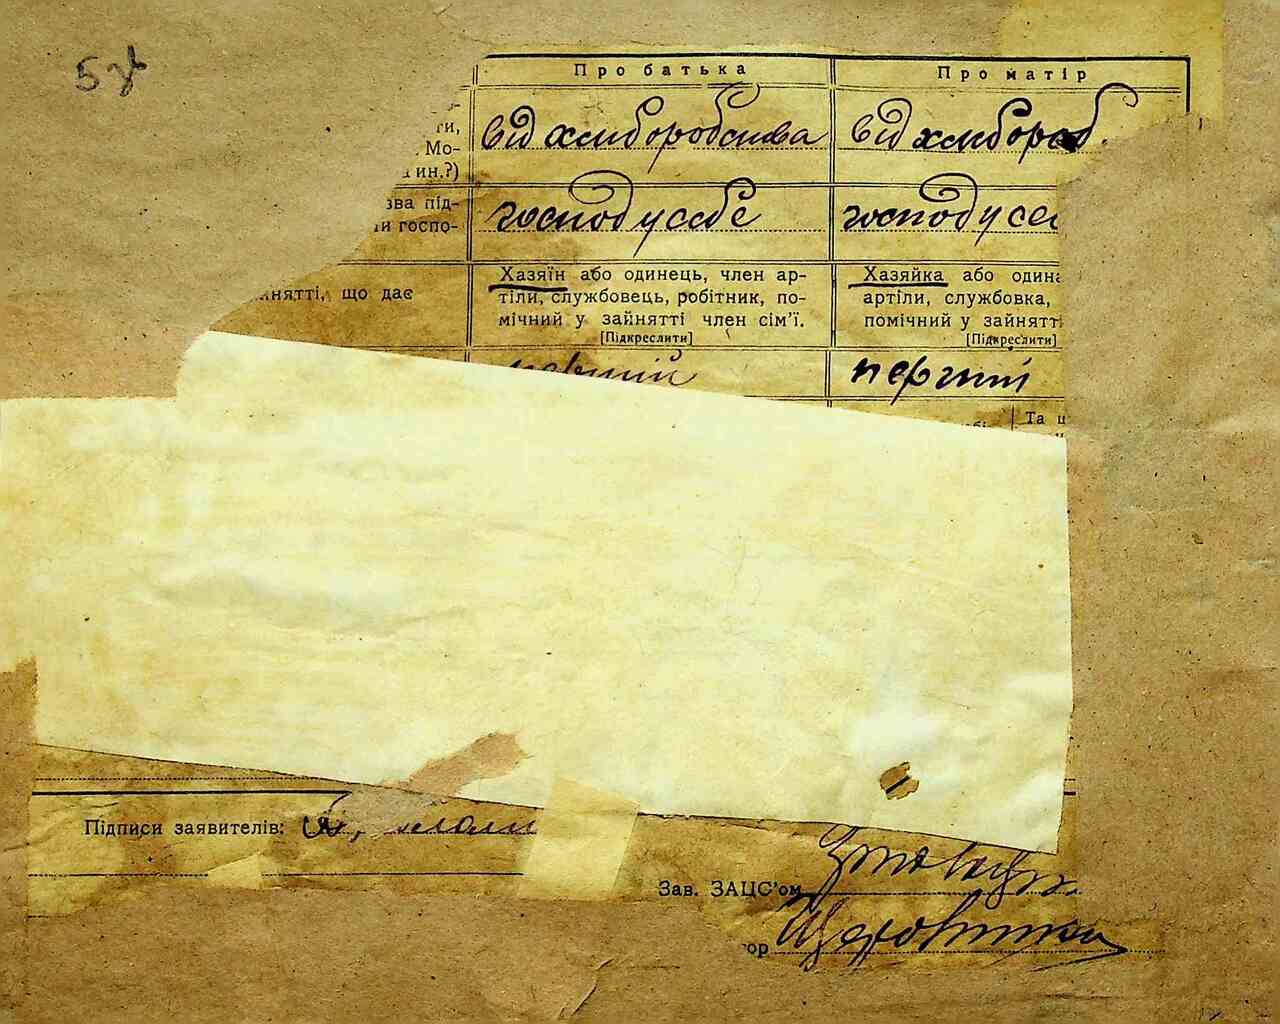 5 зв
Про батька
Про матір
ти,
Мо-
ин.?)
від хліборобства
від хлібороб
зва під-
и госпо-
господ у себе
господ у себ
нятті, що дає
Хазяїн або одинець, член ар-
тіли, службовець, робітник, по-
мічний у зайнятті член сім'ї.
[Підкреслити]
Хазяйка або одина
артіли, службовка,
помічний у зайнятт
[Підкреслити]
перший
перший
Та
Підписи заявителів:
Зав. ЗАЦС'ом
ор